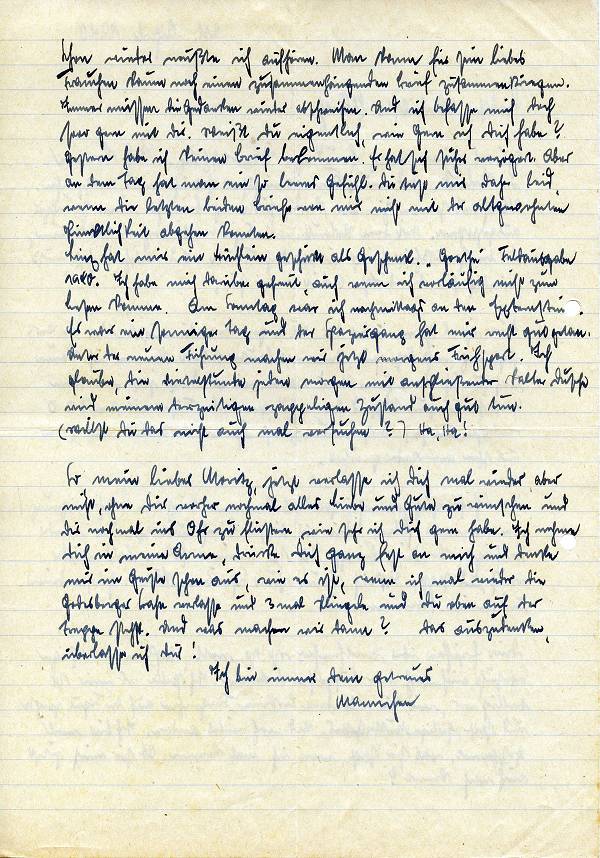 schon wieder mußte ich aufhören. Man kann für sein liebes
Frauchen kaum noch einen zusammenhängenden Brief zusammenkriegen.
Immer müssen die Gedanken wieder abschweifen. Und ich befasse mich doch
so gern mit Dir. Weißt Du eigentlich, wie gern ich Dich habe?
Gestern habe ich keinen Brief bekommen. Er hat sich sicher verzögert. Aber
an dem Tag hat man ein so leeres Gefühl. Du tust mir daher leid,
wenn die letzten beiden Briefe von mir nicht mit der altgewohnten
Pünktlichkeit abgehen konnten.
hat mir ein Büchlein geschickt als Geschenk. „Goethe" Feldausgabe
1940. Ich habe mich darüber gefreut, auch wenn ich vorläufig nicht zum
Lesen komme. Am Sonntag war ich nachmittags an den Externsteinen.
Es war ein sonniger Tag und der Spaziergang hat mir recht gut getan.
Unter der neuen Führung machen wir jetzt morgens Frühsport. Ich
glaube, die Viertelstunde jeden Morgen mit anschließender kalter Dusche
wird meinem derzeitigen zappeligen Zustand auch gut tun.
(Willst Du das nicht auch mal versuchen?) Ha, Ha!
So mein liebes Moritz, jetzt verlasse ich Dich mal wieder aber
nicht, ohne Dir vorher nochmal alles Liebe und Gute zu wünschen und
Dir nochmal ins Ohr zu flüstern, wie sehr ich Dich gern habe. Ich nehme
Dich in meine Arme, drücke Dich ganz fest an mich und denke
mir im Geiste schon aus, wie es ist, wenn ich mal wieder die
Godesberger Bahn verlasse und 3 mal klingele und Du oben auf der
Treppe stehst. Und was machen wir dann? Das auszudenken,
überlasse ich Dir!
Ich bin immer Dein getreues
Mannchen